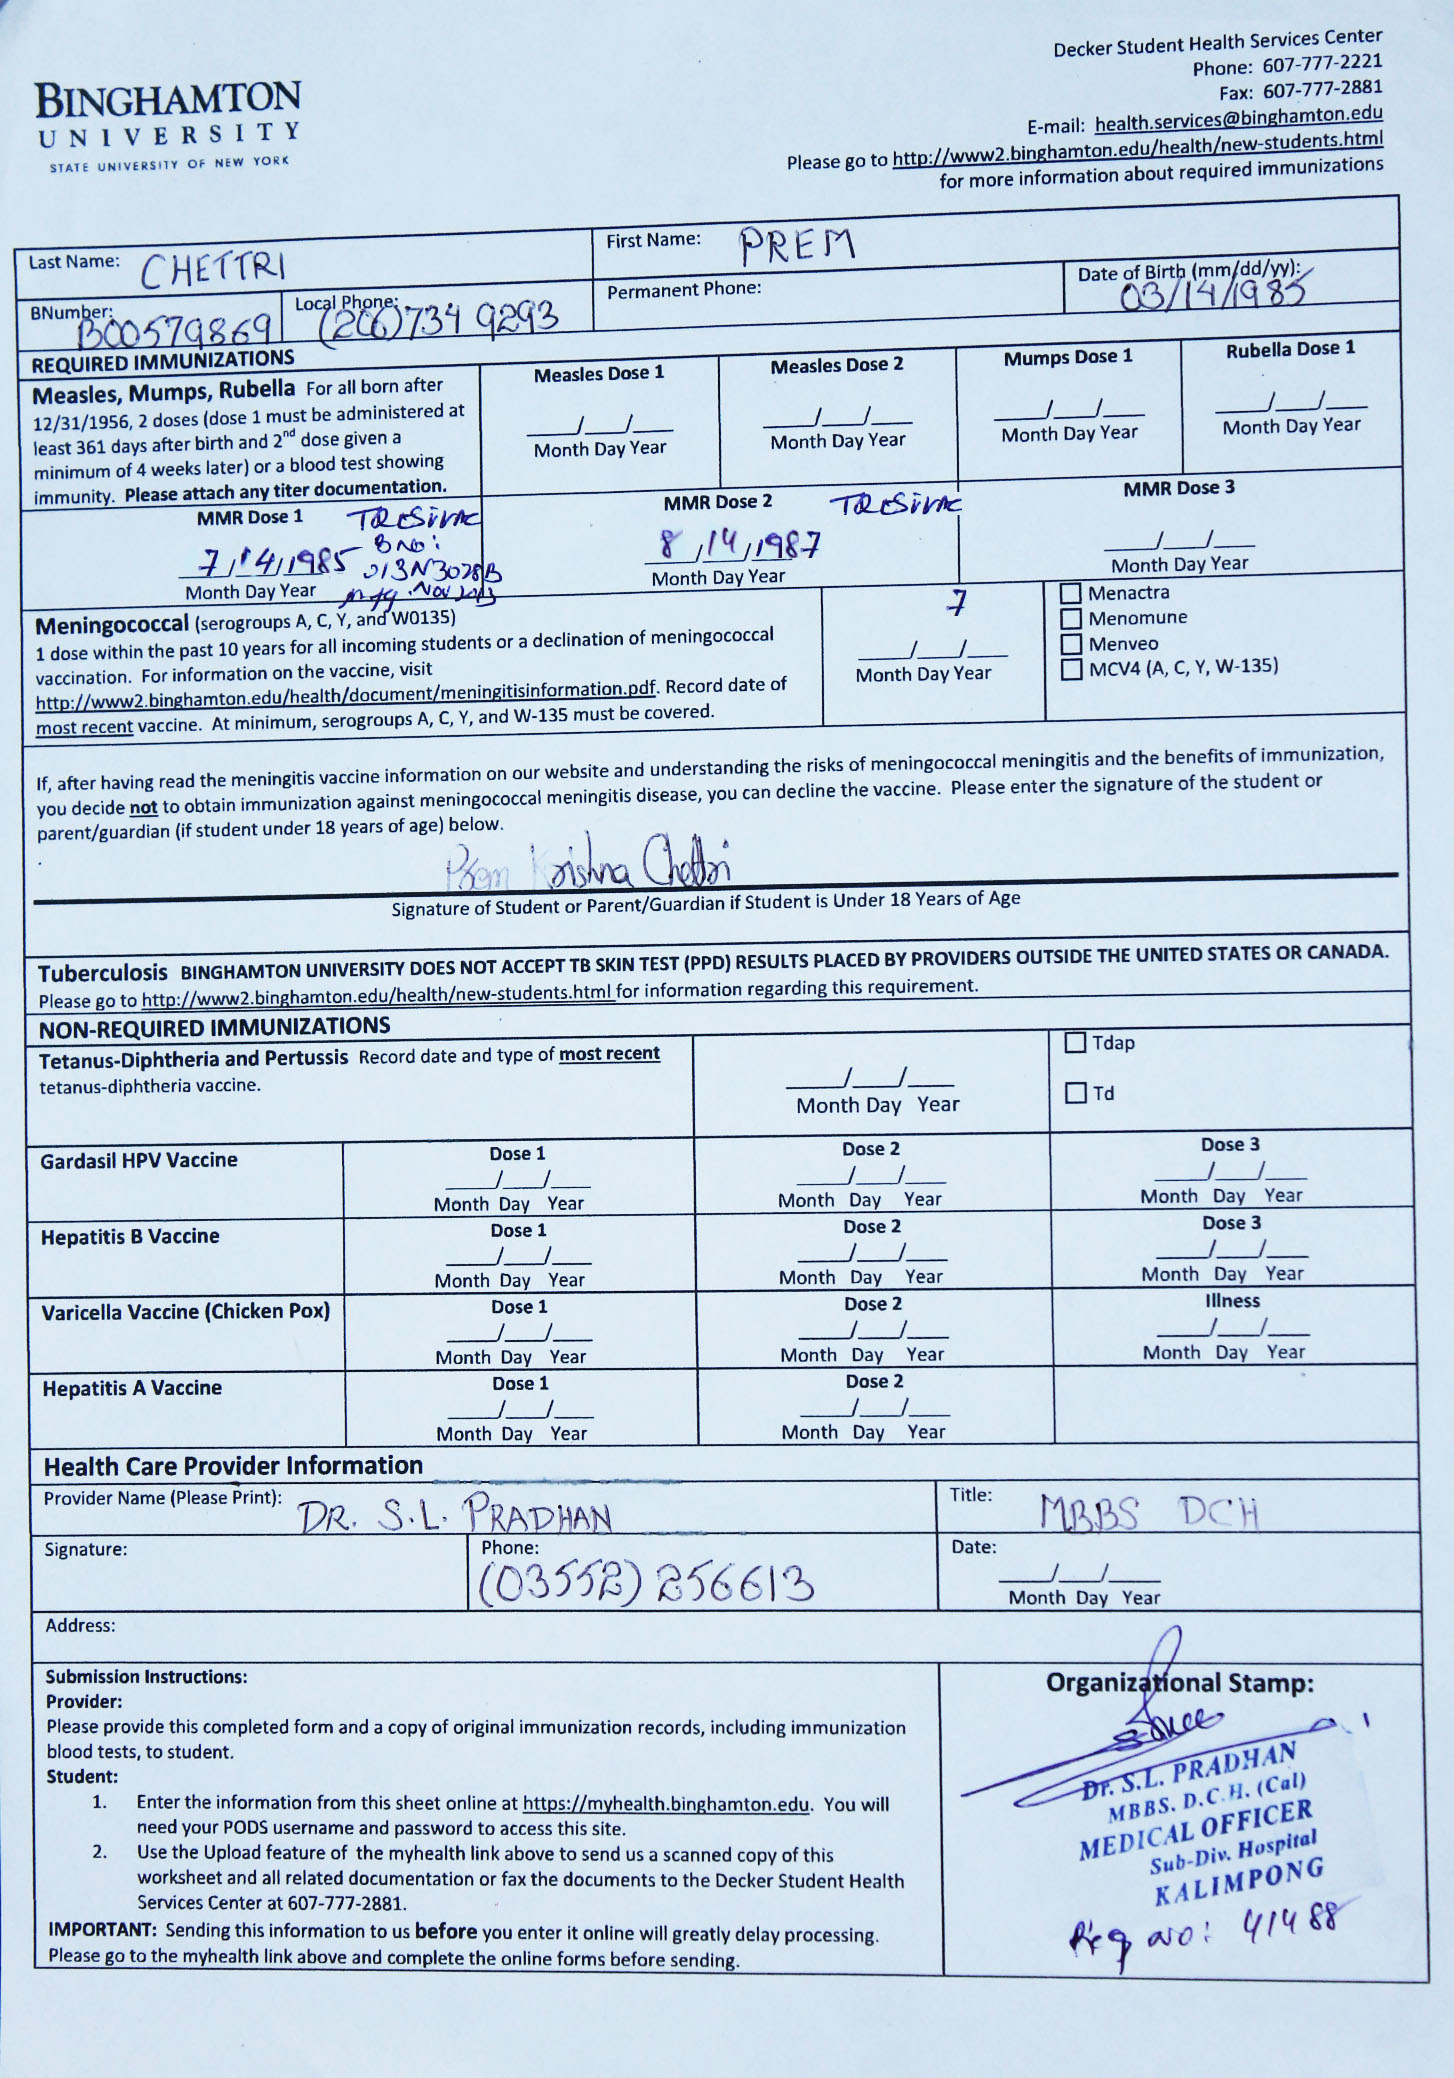 BINGHAMTON
UNIVERSITY
STATE UNIVERSITY OF NEW YORK
Decker Student Health Services Center
Phone: 607-777-2221
Fax: 607-777-2881
E-mail: health.services@binghamton.edu
Please go to http://www2.binghamton.edu/health/new-students.html
for more information about required immunizations
Last Name: CHETTRI First Name: PREM
BNumber: B00579869 Local Phone: (206)734 9293 Permanent Phone: Date of Birth (mm/dd/yy): 03/14/1985
REQUIRED IMMUNIZATIONS
Measles, Mumps, Rubella For all born after
12/31/1956, 2 doses (dose 1 must be administered at
least 361 days after birth and 2nd dose given a
minimum of 4 weeks later) or a blood test showing
immunity. Please attach any titer documentation.
Measles Dose 1 Measles Dose 2 Mumps Dose 1 Rubella Dose 1
___/___/___ ___/___/___ ___/___/___ ___/___/___
Month Day Year Month Day Year Month Day Year Month Day Year
MMR Dose 1 TRESIVAC MMR Dose 2 TRESIVAC MMR Dose 3
7/14/1985 B NO: 8/14/1987 ___/___/___
013N3028B
Month Day Year Mfg. Nov 2013 Month Day Year Month Day Year
Meningococcal (serogroups A, C, Y, and W0135)
1 dose within the past 10 years for all incoming students or a declination of meningococcal
vaccination. For information on the vaccine, visit
http://www2.binghamton.edu/health/document/meningitisinformation.pdf. Record date of
most recent vaccine. At minimum, serogroups A, C, Y, and W-135 must be covered.
7
___/___/___
Month Day Year
☐ Menactra
☐ Menomune
☐ Menveo
☐ MCV4 (A, C, Y, W-135)
If, after having read the meningitis vaccine information on our website and understanding the risks of meningococcal meningitis and the benefits of immunization,
you decide not to obtain immunization against meningococcal meningitis disease, you can decline the vaccine. Please enter the signature of the student or
parent/guardian (if student under 18 years of age) below.
Prem Krishna Chettri
Signature of Student or Parent/Guardian if Student is Under 18 Years of Age
Tuberculosis BINGHAMTON UNIVERSITY DOES NOT ACCEPT TB SKIN TEST (PPD) RESULTS PLACED BY PROVIDERS OUTSIDE THE UNITED STATES OR CANADA.
Please go to http://www2.binghamton.edu/health/new-students.html for information regarding this requirement.
NON-REQUIRED IMMUNIZATIONS
Tetanus-Diphtheria and Pertussis Record date and type of most recent
tetanus-diphtheria vaccine.
___/___/___
Month Day Year
☐ Tdap
☐ Td
Gardasil HPV Vaccine Dose 1 Dose 2 Dose 3
___/___/___ ___/___/___ ___/___/___
Month Day Year Month Day Year Month Day Year
Hepatitis B Vaccine Dose 1 Dose 2 Dose 3
___/___/___ ___/___/___ ___/___/___
Month Day Year Month Day Year Month Day Year
Varicella Vaccine (Chicken Pox) Dose 1 Dose 2 Illness
___/___/___ ___/___/___ ___/___/___
Month Day Year Month Day Year Month Day Year
Hepatitis A Vaccine Dose 1 Dose 2
___/___/___ ___/___/___
Month Day Year Month Day Year
Health Care Provider Information
Provider Name (Please Print): DR. S.L. PRADHAN Title: MBBS DCH
Signature: Phone: (03552) 256613 Date: ___/___/___
Month Day Year
Address:
Submission Instructions:
Provider:
Please provide this completed form and a copy of original immunization records, including immunization
blood tests, to student.
Student:
1. Enter the information from this sheet online at https://myhealth.binghamton.edu. You will
need your PODS username and password to access this site.
2. Use the Upload feature of the myhealth link above to send us a scanned copy of this
worksheet and all related documentation or fax the documents to the Decker Student Health
Services Center at 607-777-2881.
IMPORTANT: Sending this information to us before you enter it online will greatly delay processing.
Please go to the myhealth link above and complete the online forms before sending.
Organizational Stamp:
Dr. S.L. PRADHAN
MBBS. D.C.H. (Cal)
MEDICAL OFFICER
Sub-Div. Hospital
KALIMPONG
Reg no: 41488